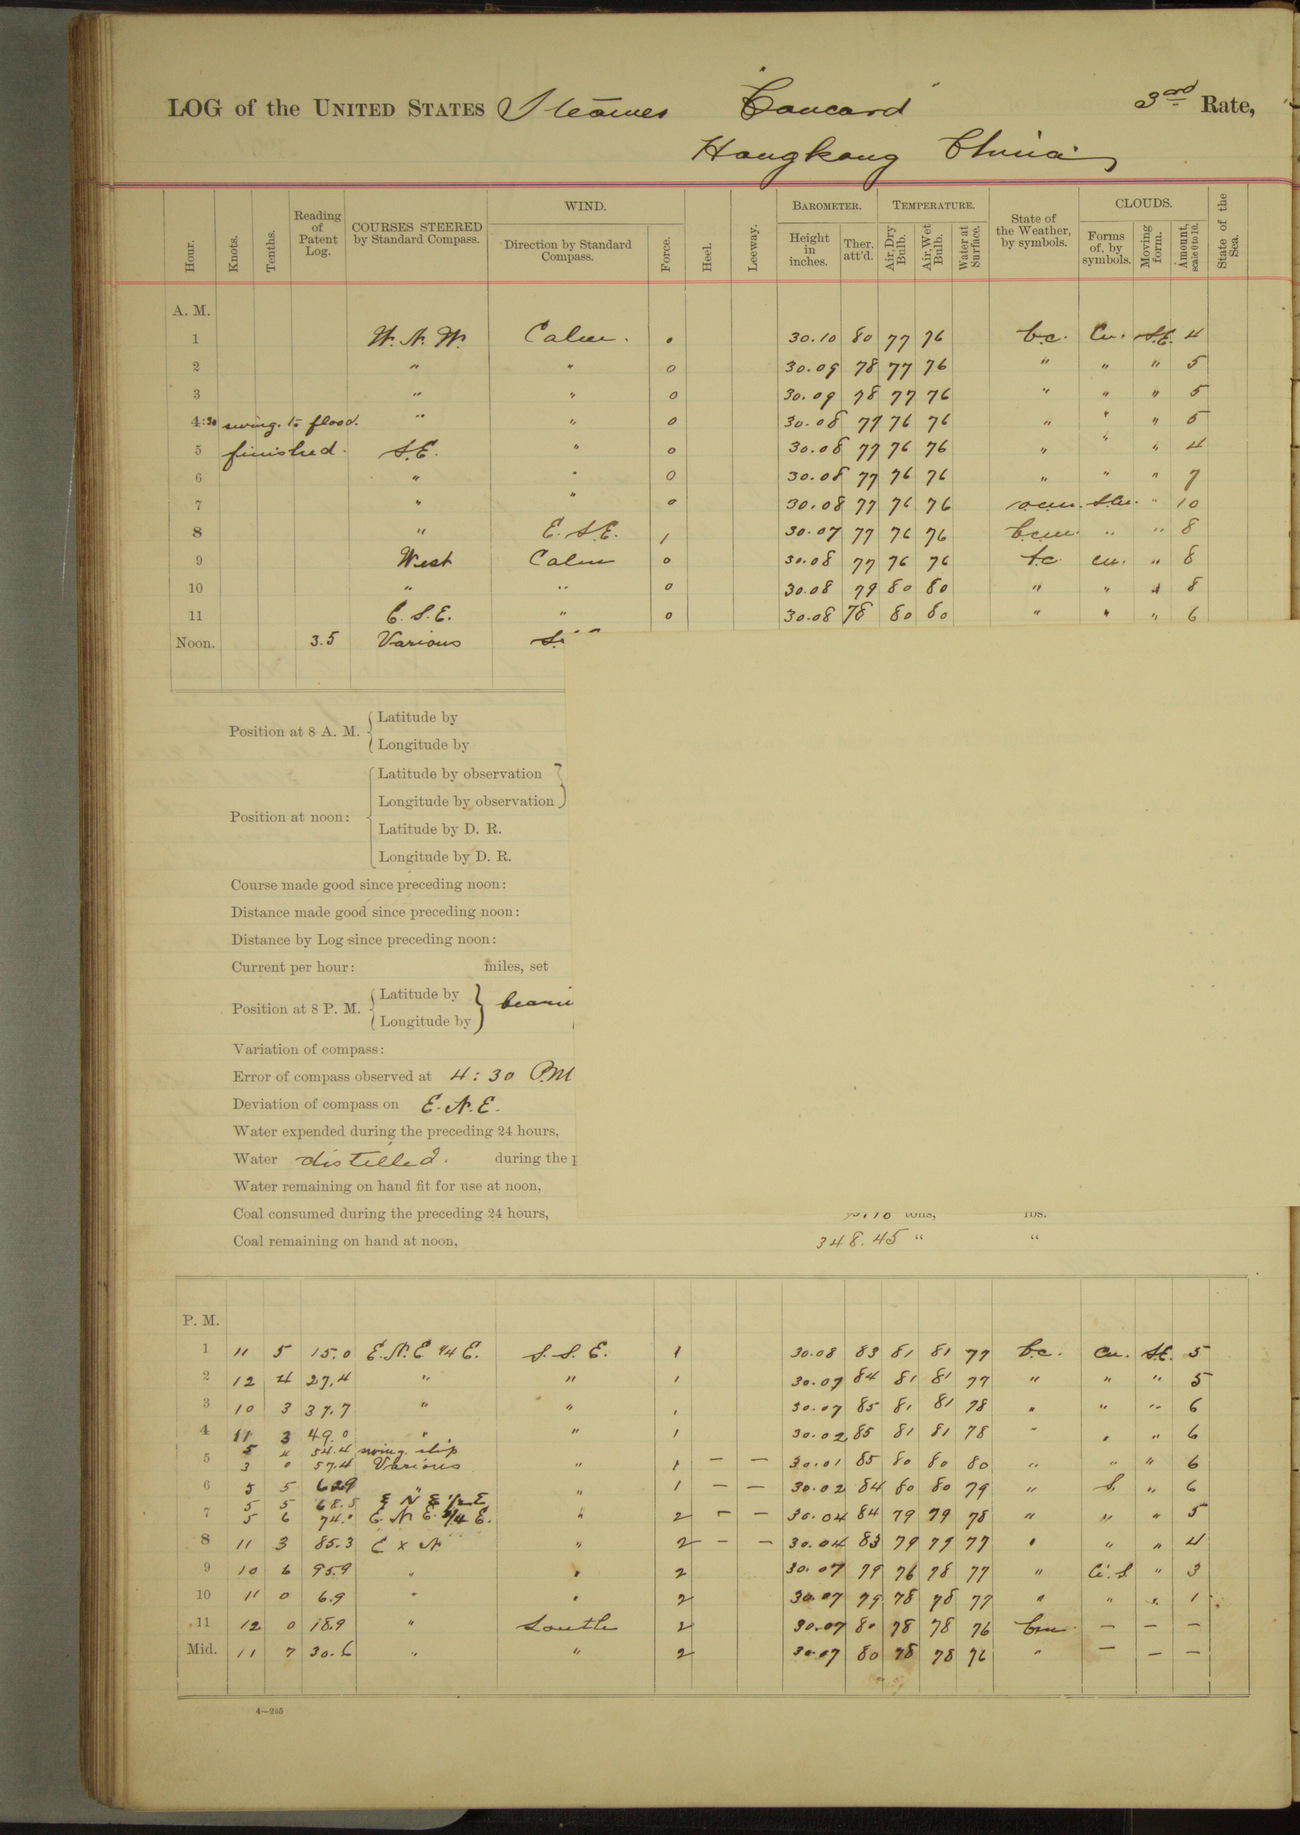 LOG of the UNITED STATES Steamer "Concord" 3rd Rate,
Hongkong China
Hour. Knots. Tenths. Reading of Patent Log. COURSES STEERED by Standard Compass. WIND. Direction by Standard Compass. Force. Heel. Leeway. BAROMETER. Height in inches. Ther. att'd. TEMPERATURE. Air, Dry Bulb. Air, Wet Bulb. Water at Surface. State of the Weather, by symbols. CLOUDS. Forms of, by symbols. Moving form. Amount, scale 0 to 10. State of the Sea.
A. M.
1 W. N. W. Calm. 0 30.10 80 77 76 b.c. Cu. S.E. 4
2 " " 0 30.09 78 77 76 " " " 5
3 " " 0 30.09 78 77 76 " " " 5
4:30 swing. to flood. " " 0 30.08 77 76 76 " " " 5
5 finished. S.E. " 0 30.08 77 76 76 " " " 4
6 " " 0 30.08 77 76 76 " " " 7
7 " " 0 30.08 77 76 76 o.c.m. S.Cu. " 10
8 " E. S.E. 1 30.07 77 76 76 b.c.m. " " 8
9 West Calm 0 30.08 77 76 76 b.c. cu. " 8
10 " " 0 30.08 79 80 80 " " " 8
11 E. S. E. " 0 30.08 78 80 80 " " " 6
Noon. 3.5 Various
Position at 8 A. M. Latitude by
Longitude by
Position at noon: Latitude by observation
Longitude by observation
Latitude by D. R.
Longitude by D. R.
Course made good since preceding noon:
Distance made good since preceding noon:
Distance by Log since preceding noon:
Current per hour: miles, set
Position at 8 P. M. Latitude by
Longitude by
Variation of compass:
Error of compass observed at 4:30 P.M
Deviation of compass on E. N. E.
Water expended during the preceding 24 hours,
Water distilled. during the
Water remaining on hand fit for use at noon,
Coal consumed during the preceding 24 hours, tons, lbs.
Coal remaining on hand at noon, 348.45 " "
P. M.
1 11 5 15.0 E. N. E 3/4 E. S. S. E. 1 30.08 83 81 81 77 b.c. Cu. S.E. 5
2 12 4 27.4 " " 1 30.07 84 81 81 77 " " " 5
3 10 3 37.7 " " 1 30.07 85 81 81 78 " " " 6
4 11 3 49.0 " " 1 30.02 85 81 81 78 " " " 6
5 4 54.4 swing. ship
5 3 0 57.4 Various " 1 — — 30.01 85 80 80 80 " " " 6
6 5 5 62.9 " " 1 — — 30.02 84 80 80 79 " S. " 6
5 5 68.5 E N E 1/2 E
7 5 6 74.0 E. N. E. 3/4 E. " 2 — — 30.04 84 79 79 78 " " " 5
8 11 3 85.3 E x N " 2 — — 30.04 83 79 79 77 " " " 4
9 10 6 95.9 " " 2 30.07 79 76 78 77 " Ci. S " 3
10 11 0 6.9 " " 2 30.07 79 78 78 77 " " " 1
11 12 0 18.9 " South 2 30.07 80 78 78 76 b.m. — — —
Mid. 11 7 30.6 " " 2 30.07 80 78 78 76 " — — —
4—255